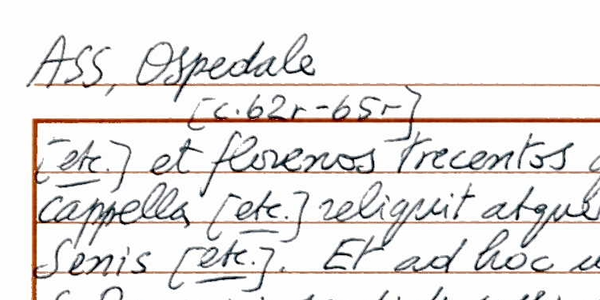 ASS, Ospedale
[c.62r-65r]
[etc.] et florenos trecentos
cappella [etc.] reliquit atque
Senis [etc.]. Et ad hoc